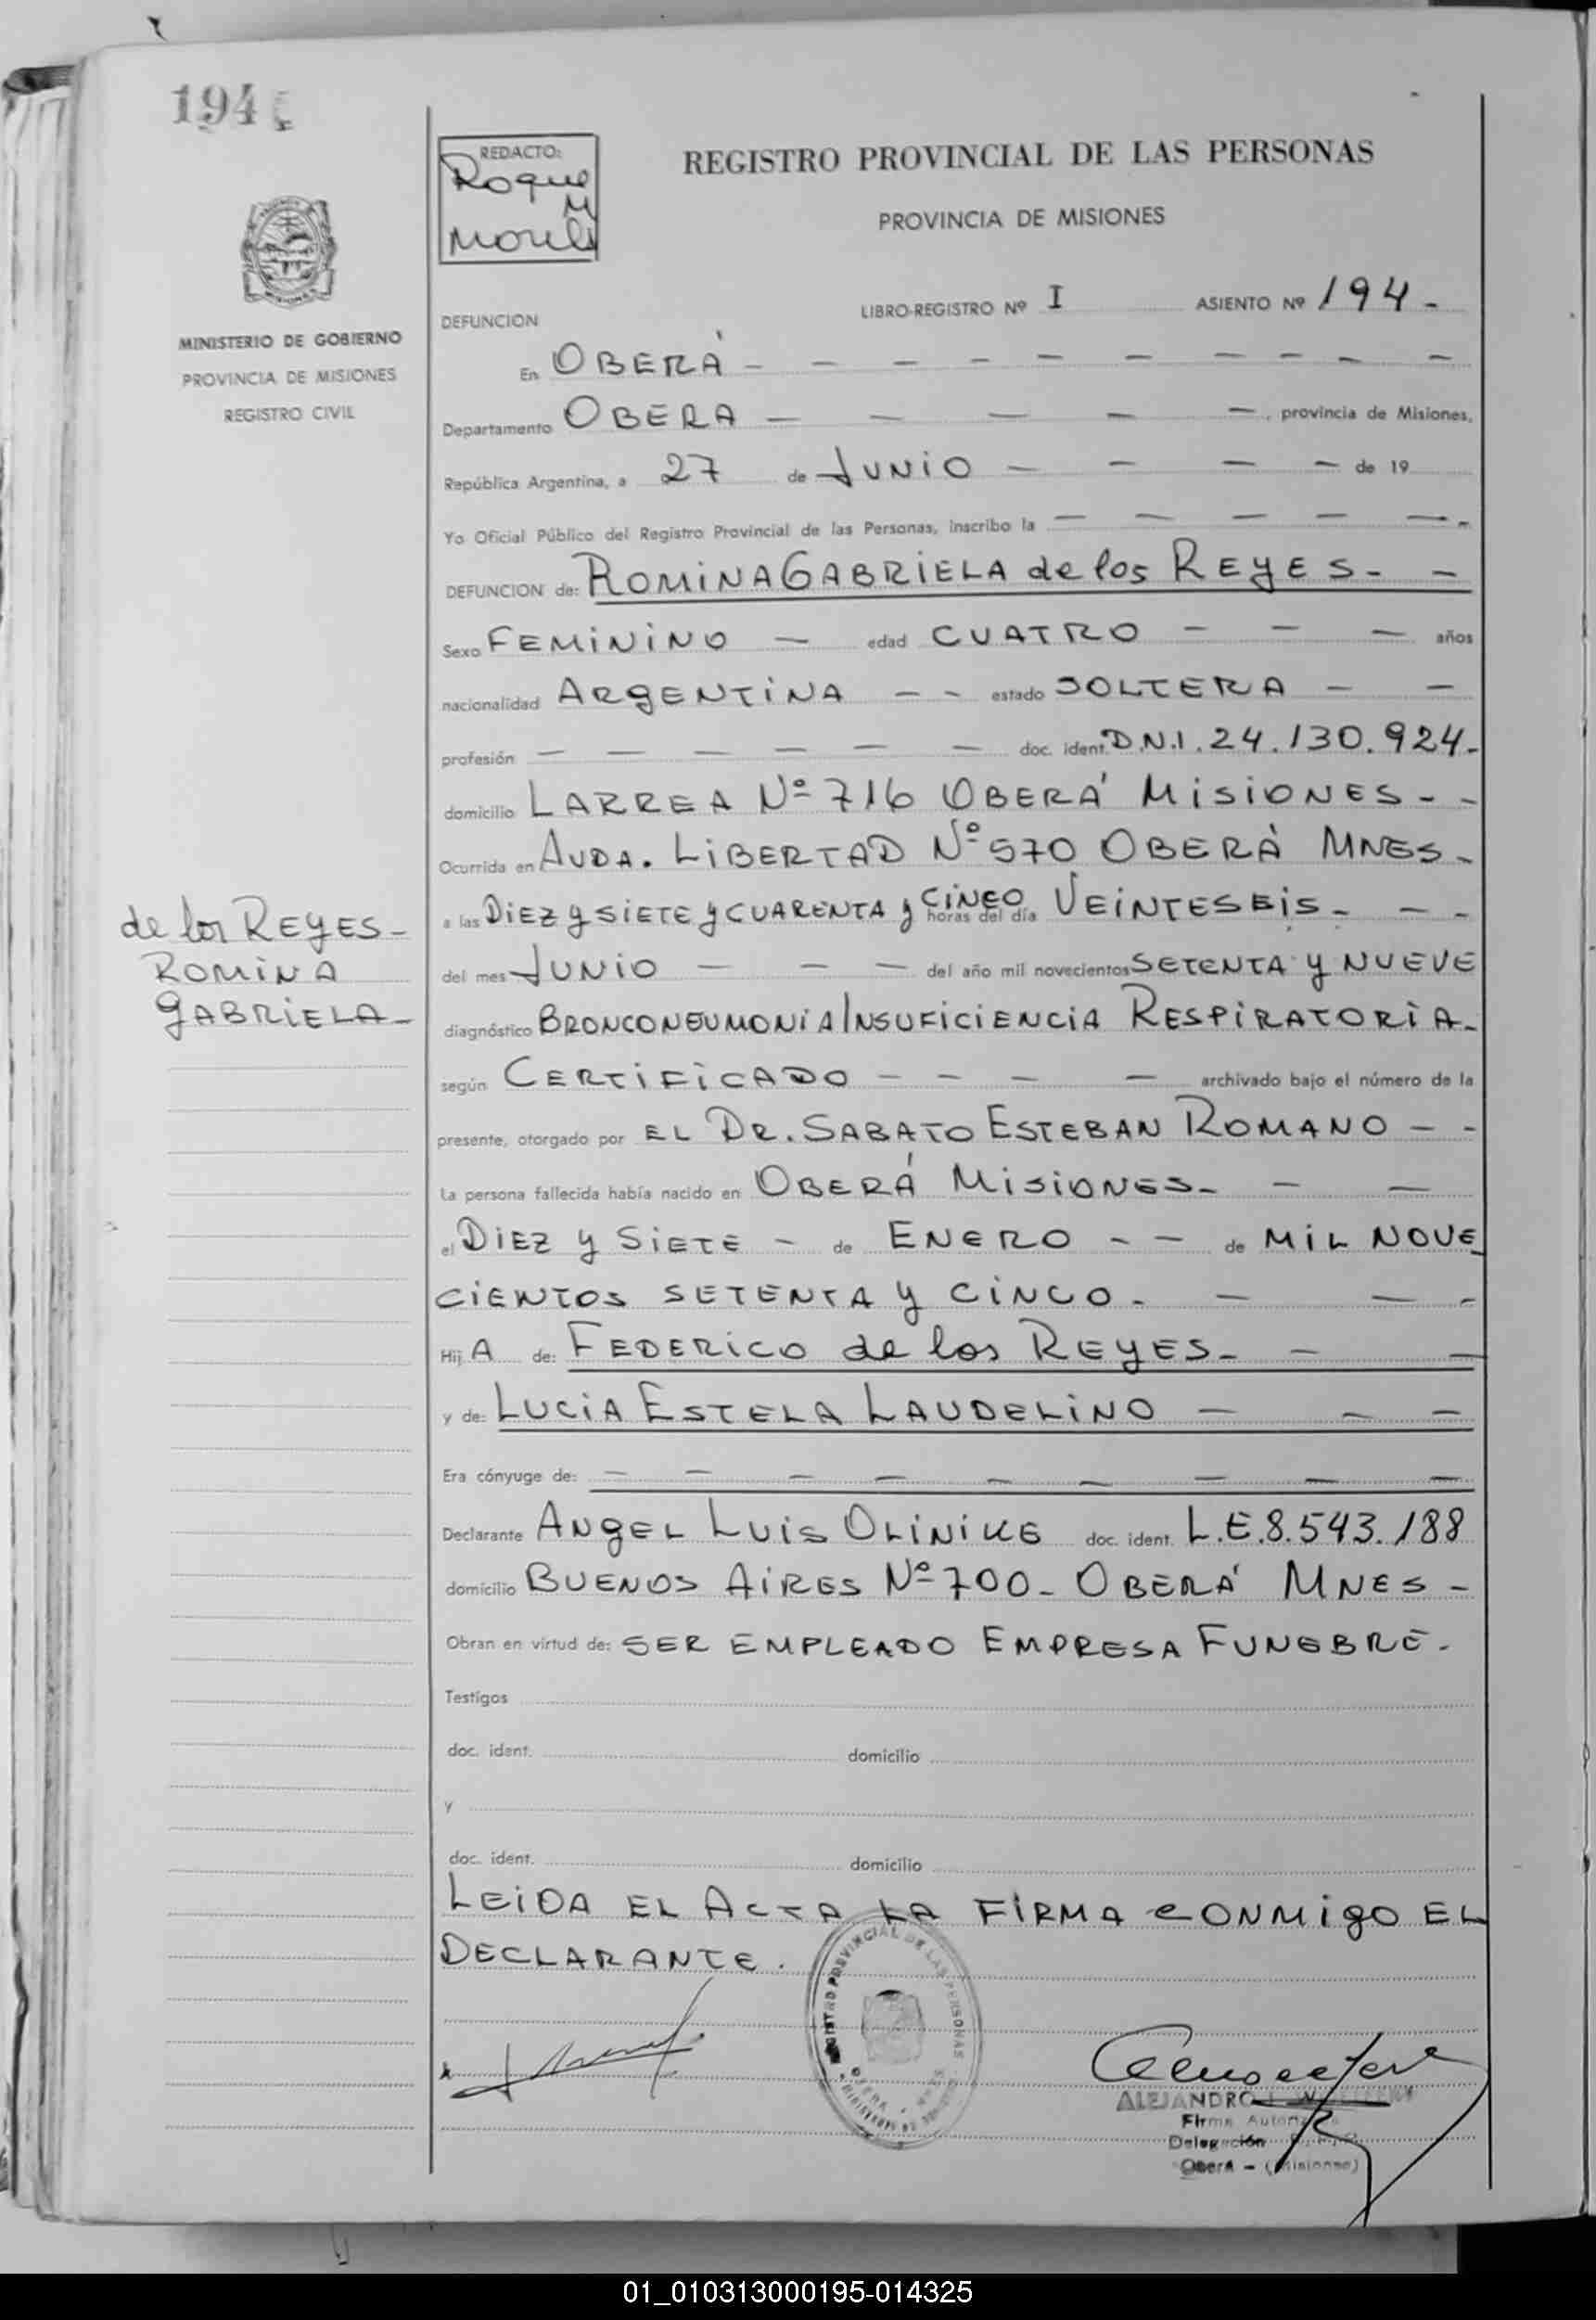 194
REDACTO:
Roque
M
REGISTRO PROVINCIAL DE LAS PERSONAS
PROVINCIA DE MISIONES
MINISTERIO DE GOBIERNO
PROVINCIA DE MISIONES
REGISTRO CIVIL
LIBRO-REGISTRO Nº I ASIENTO Nº 194-
DEFUNCION
En OBERÁ - - - - - - - - - -
Departamento OBERA - - - - - , provincia de Misiones,
República Argentina, a 27 de JUNIO - - - - de 19
Yo Oficial Público del Registro Provincial de las Personas, inscribo la - - - - - -
DEFUNCION de: ROMINA GABRIELA de los REYES- -
Sexo FEMININO - edad CUATRO - - - años
nacionalidad ARGENTINA - - estado SOLTERA - -
profesión - - - - - - doc. ident. D.N.I. 24.130.924-
domicilio LARREA Nº 716 OBERÁ MISIONES- -
Ocurrida en AVDA. LIBERTAD Nº 570 OBERÀ MNES-
a las DIEZ y SIETE y CUARENTA y CINCO horas del día VEINTESEIS- - -
del mes JUNIO - - - del año mil novecientos SETENTA y NUEVE
diagnóstico BRONCONEUMONIA INSUFICIENCIA RESPIRATORIA-
según CERTIFICADO - - - - archivado bajo el número de la
presente, otorgado por EL DR. SABATO ESTEBAN ROMANO - -
La persona fallecida había nacido en OBERÁ MISIONES- - -
el DIEZ y SIETE - de ENERO - - de MIL NOVE
CIENTOS SETENTA y CINCO- - - -
Hij A de: FEDERICO de los REYES- - -
y de: LUCIA ESTELA LAUDELINO - - -
Era cónyuge de: - - - - - - - - -
Declarante ANGEL LUIS OLINIKE doc. ident. L.E.8.543.188
domicilio BUENOS AIRES Nº 700- OBERÁ MNES-
Obran en virtud de: SER EMPLEADO EMPRESA FUNEBRE-
Testigos
doc. ident. domicilio
y
doc. ident. domicilio
LEIDA EL ACTA LA FIRMA CONMIGO EL
DECLARANTE.
de los REYES-
ROMINA
GABRIELA-
REGISTRO PROVINCIAL DE LAS PERSONAS
ALEJANDRO
Firma
Delegación
Oberá - (Misiones)
01_010313000195-014325